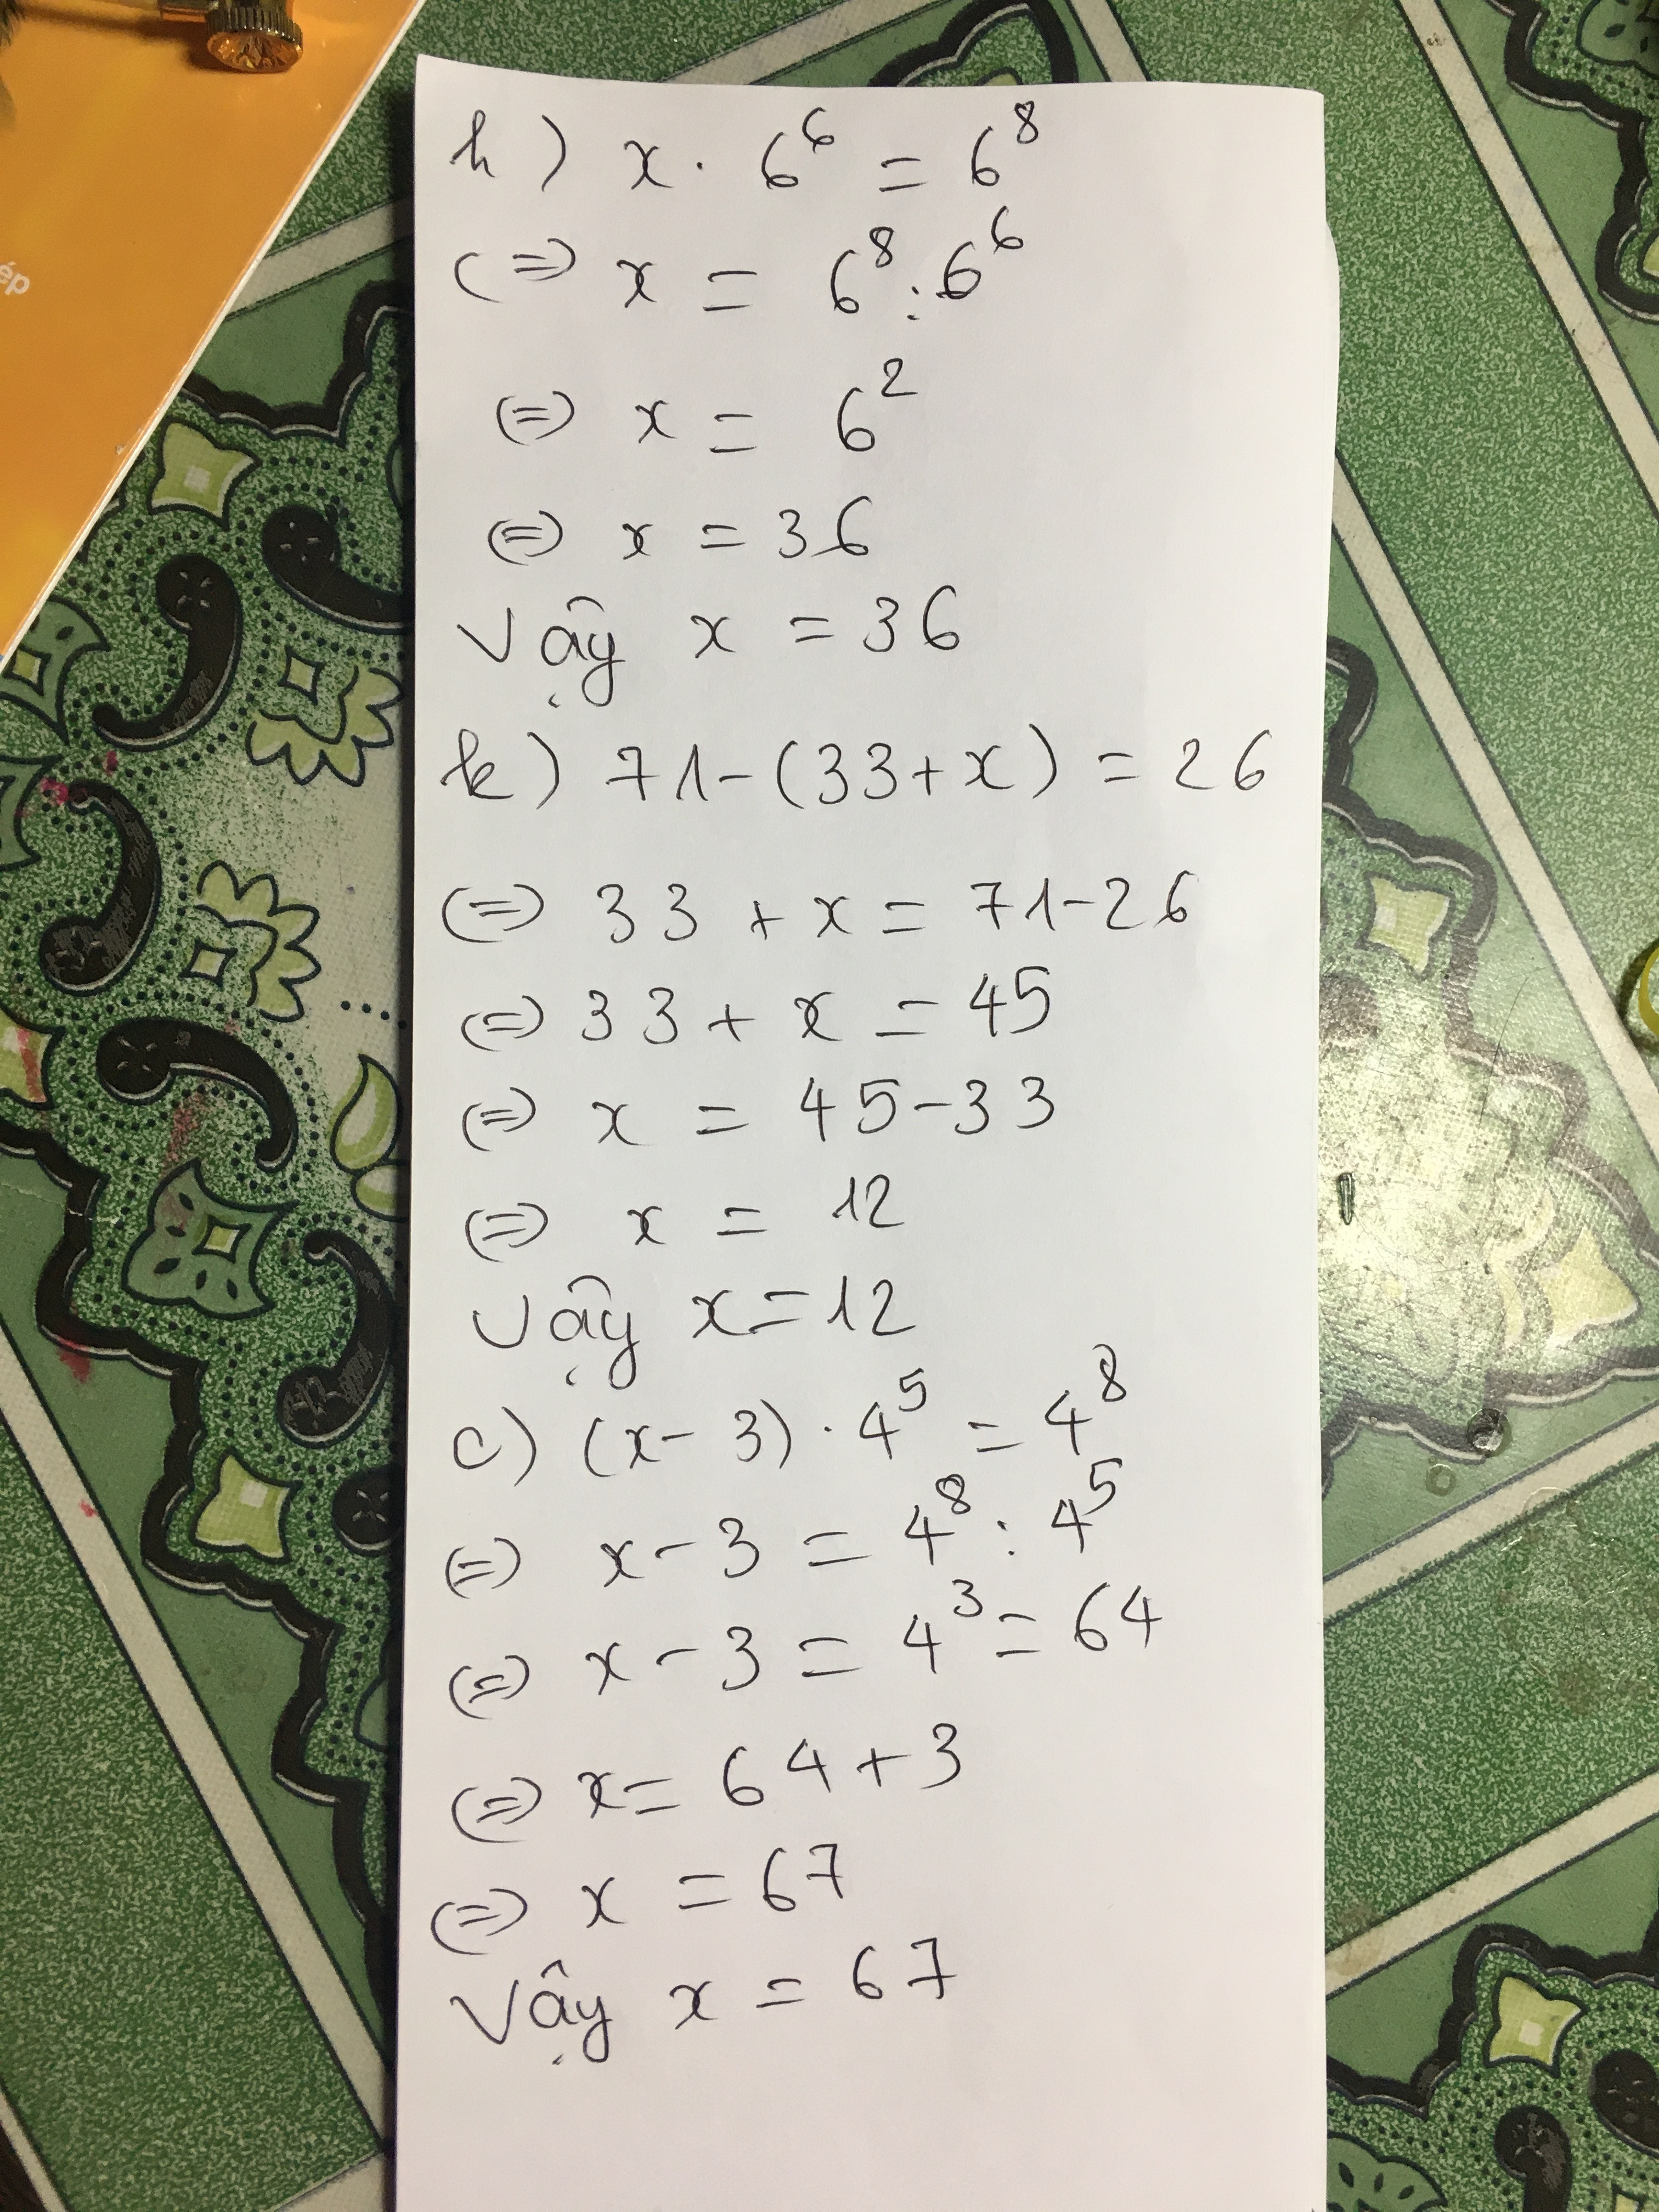 ép
h) x . 6⁶ = 6⁸
(=) x = 6⁸ : 6⁶
(=) x = 6²
(=) x = 36
Vậy x = 36
k) 71 - (33 + x) = 26
(=) 33 + x = 71 - 26
(=) 33 + x = 45
(=) x = 45 - 33
(=) x = 12
Vậy x = 12
c) (x - 3) . 4⁵ = 4⁸
(=) x - 3 = 4⁸ : 4⁵
(=) x - 3 = 4³ = 64
(=) x = 64 + 3
(=) x = 67
Vậy x = 67